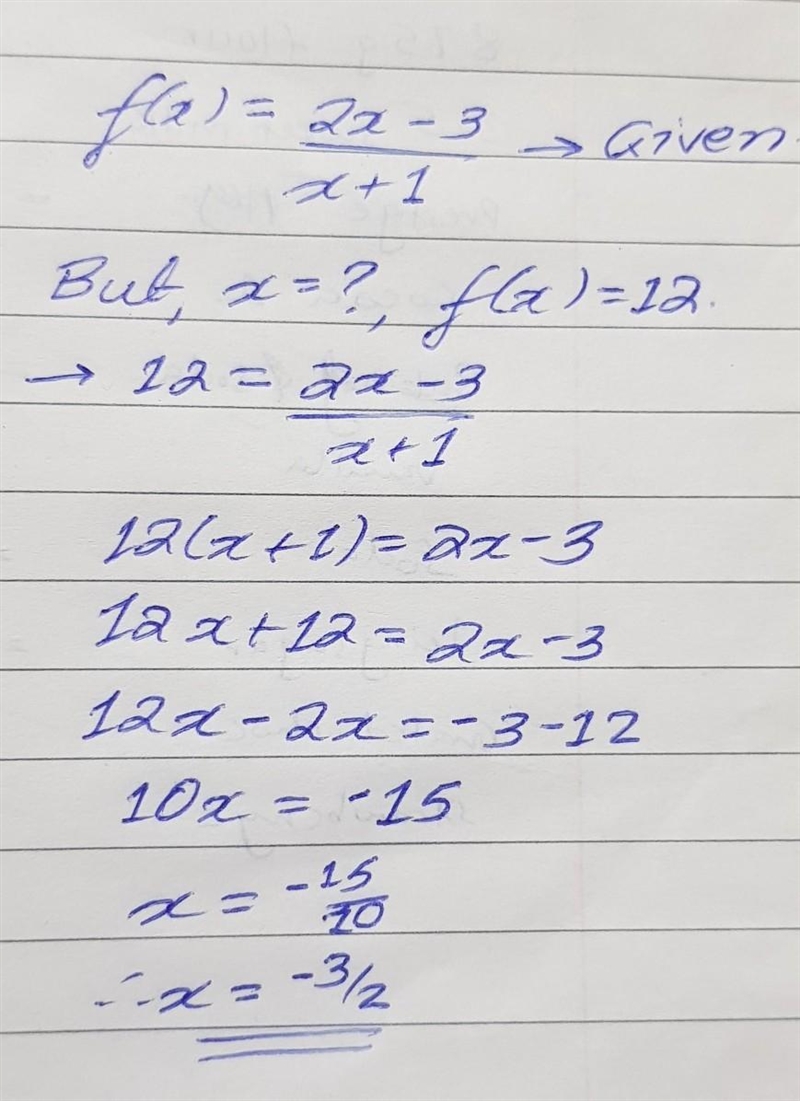 f(x) = 2x - 3 / x + 1 → Given
But, x = ?, f(x) = 12.
→ 12 = 2x - 3 / x + 1
12(x + 1) = 2x - 3
12x + 12 = 2x - 3
12x - 2x = -3 - 12
10x = -15
x = -15/10
∴ x = -3/2